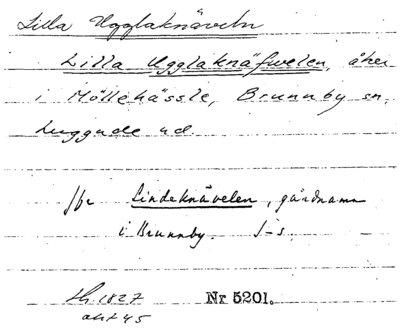 Lilla Ugglaknäveln
Lilla Ugglaknäfwelen, åker
i Möllehässle, Brunnby sn,
Luggude hd.
Jfr Lindeknävelen, gårdnamn
i Brunnby. J-s.
Sth. 1827 Nr 5201.
akt 45